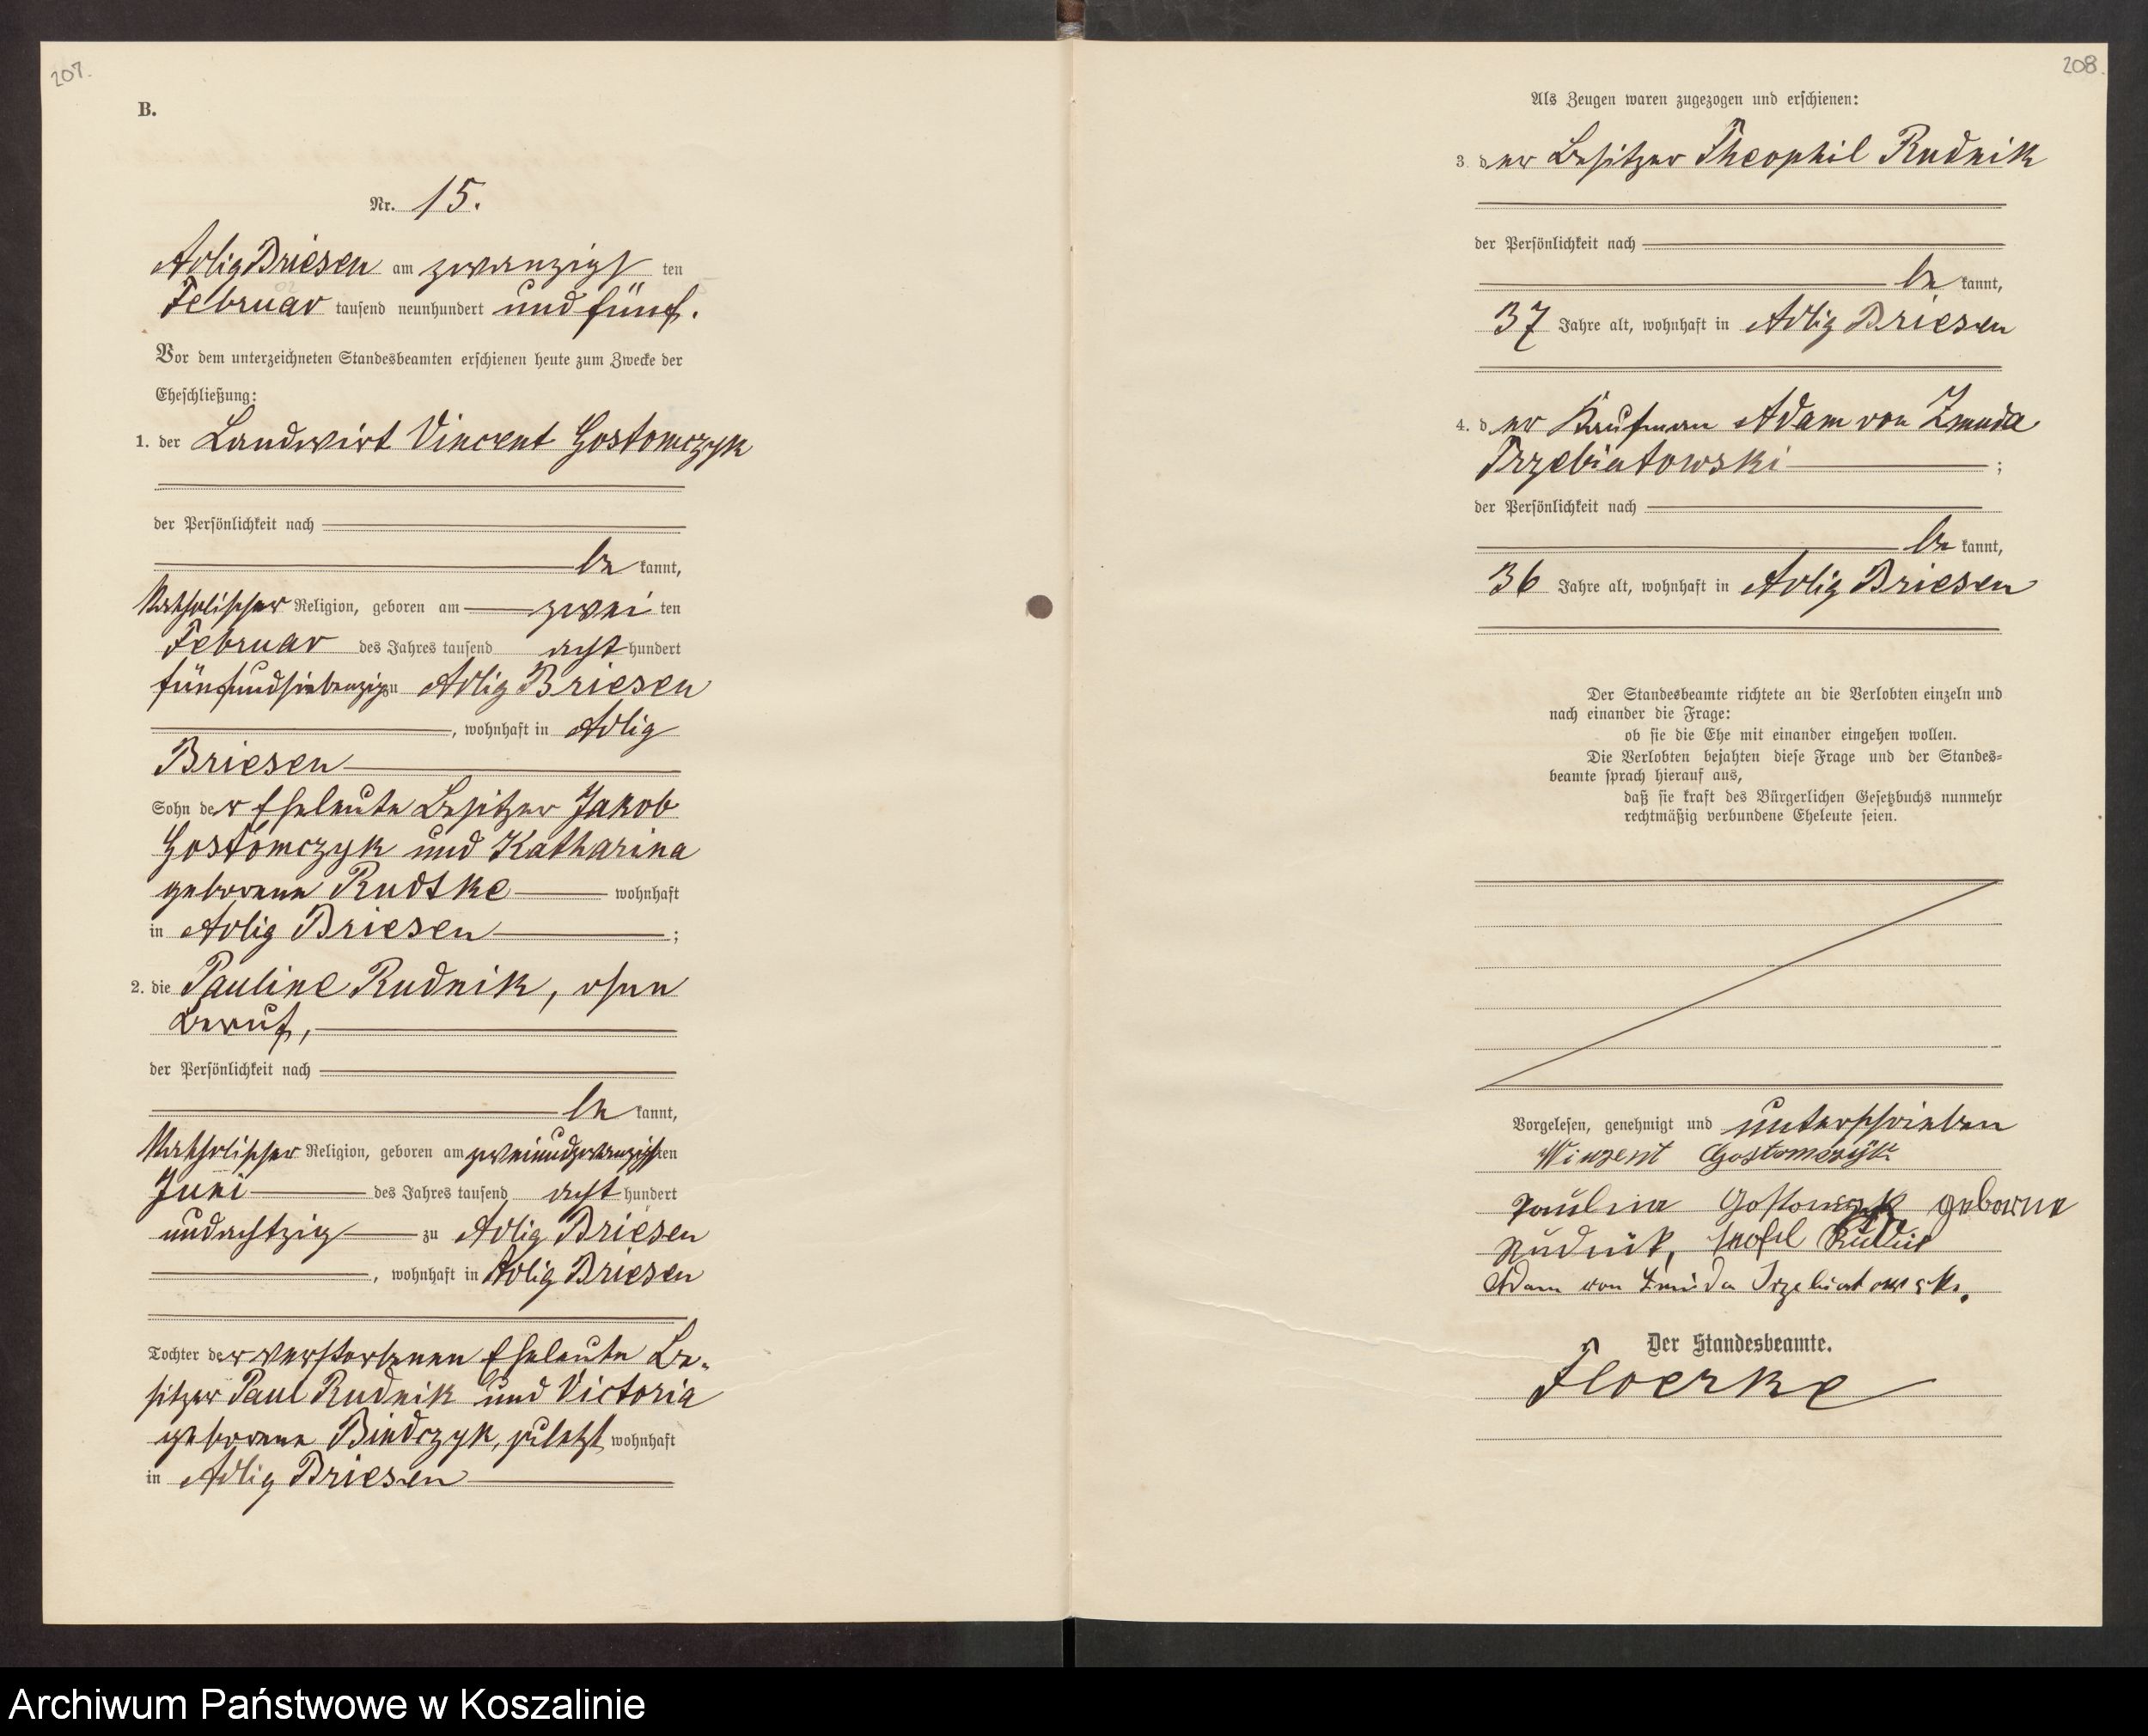 207.
B.
Nr. 15.
Adlig Briesen am zwanzigsten
Februar tausend neunhundert und fünf.
Vor dem unterzeichneten Standesbeamten erschienen heute zum Zwecke der
Eheschließung:
1. der Landwirt Vincent Gostomczyk
der Persönlichkeit nach
bekannt,
katholischer Religion, geboren am zweiten
Februar des Jahres tausend achthundert
fünfundsiebenzig zu Adlig Briesen
, wohnhaft in Adlig
Briesen
Sohn der Eheleute Besitzer Jakob
Gostomczyk und Katharina
geborene Rudtke wohnhaft
in Adlig Briesen ;
2. die Pauline Rudnik, ohne
Beruf,
der Persönlichkeit nach
bekannt,
katholischer Religion, geboren am zweiundzwanzigsten
Juni des Jahres tausend achthundert
undachtzig zu Adlig Briesen
, wohnhaft in Adlig Briesen
Tochter der verstorbenen Eheleute Be-
sitzer Paul Rudnik und Victoria
geborene Bindczyk, zuletzt wohnhaft
in Adlig Briesen
208.
Als Zeugen waren zugezogen und erschienen:
3. der Besitzer Theophil Rudnik
der Persönlichkeit nach
bekannt,
37 Jahre alt, wohnhaft in Adlig Briesen
4. der Kaufman Adam von Zmuda
Trzebiatowski ;
der Persönlichkeit nach
bekannt,
36 Jahre alt, wohnhaft in Adlig Briesen
Der Standesbeamte richtete an die Verlobten einzeln und
nach einander die Frage:
ob sie die Ehe mit einander eingehen wollen.
Die Verlobten bejahten diese Frage und der Standes-
beamte sprach hierauf aus,
daß sie kraft des Bürgerlichen Gesetzbuchs nunmehr
rechtmäßig verbundene Eheleute seien.
Vorgelesen, genehmigt und unterschrieben
Winzent Gostomczyk
Paulina Gostomczyk geborne
Rudnik, Rudnik
Adam von Zmuda Trzebiatowski.
Der Standesbeamte.
Floerke
Archiwum Państwowe w Koszalinie